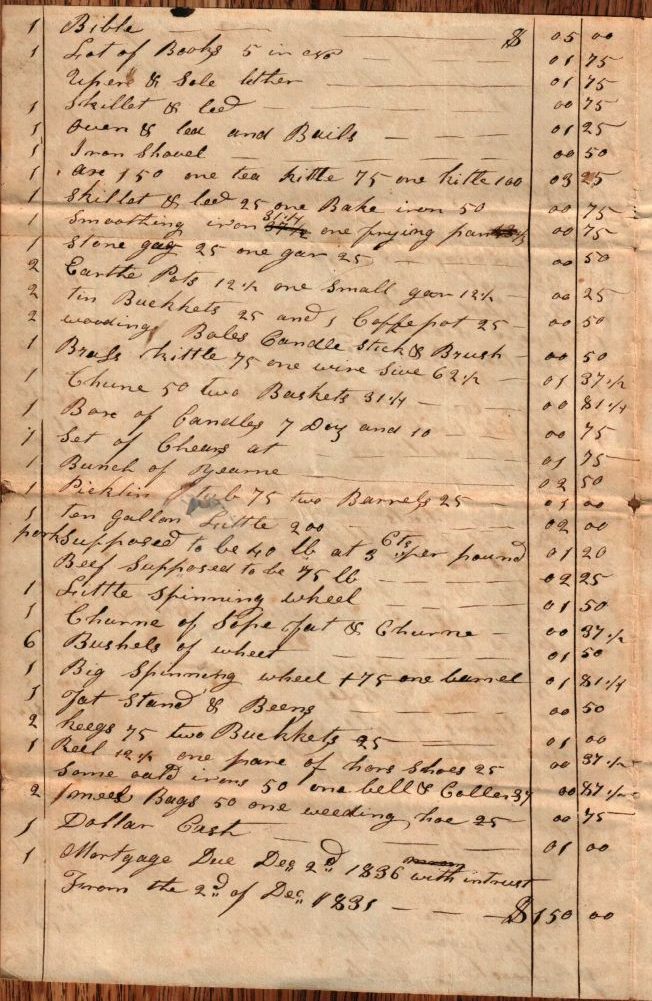 1 Bible $ 05 00
1 Lot of Books 5 in 01 75
Uper & Sole lether 01 75
1 Skillet & led 00 75
1 oven & led and Bails 01 25
1 Iron Shovel 00 50
1 axe 150 one tea kittle 75 one kittle 100 03 25
1 Skillet & led 25 one Bake iron 50 00 75
1 Smoothing iron 31 1/4 one frying pan 00 75
1 Stone gag 25 one gar 25 00 50
2 Earthe Pots 12 1/2 one Small gar 12 1/2 00 25
2 tin Buckkets 25 and 1 Coffepot 25 00 50
2 wooding Boles Candle stick & Brush 00 50
1 Brass kittle 75 one wire sive 62 1/2 01 37 1/2
1 Chune 50 two Baskets 31 1/4 00 81 1/4
1 Box of Candles 7 Doz and 10 00 75
1 Set of Chears at 01 75
1 Bunch of yearne 02 50
1 Picklin Tub 75 two Barrels 25 01 00
1 ten gallon kittle 200 02 00
pork Supposed to be 40 lb at 3 Cts per pound 01 20
Beef Supposed to be 75 lb 02 25
1 Little Spinning wheel 01 50
1 Churne of Sope fat & Churne 00 37 1/2
6 Bushels of wheet 01 50
1 Big Spinning wheel 175 one barrel 01 81 1/4
1 fat Stand & Beens 00 50
2 keegs 75 two Buckkets 25 01 00
1 Reel 12 1/2 one pare of hors Shoes 25 00 37 1/2
Some oald irons 50 one bell & Coller 37 00 87 1/2
2 meel Bags 50 one weeding hoe 25 00 75
1 Dollar Cash 01 00
1 Mortgage Due Dec 2d 1836 with intrust
From the 2d of Dec 1831 $ 150 00